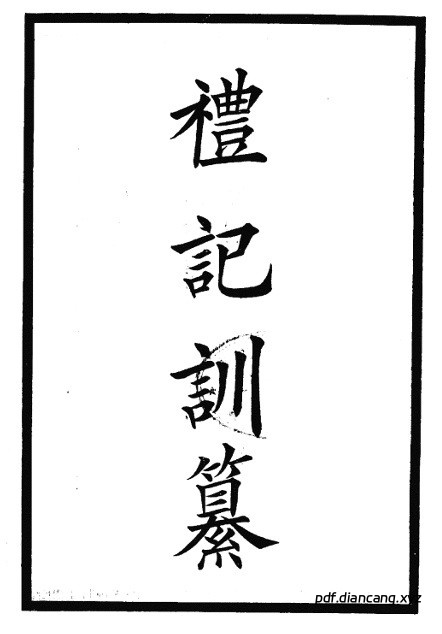 禮記訓纂
pdf.diancang.xyz